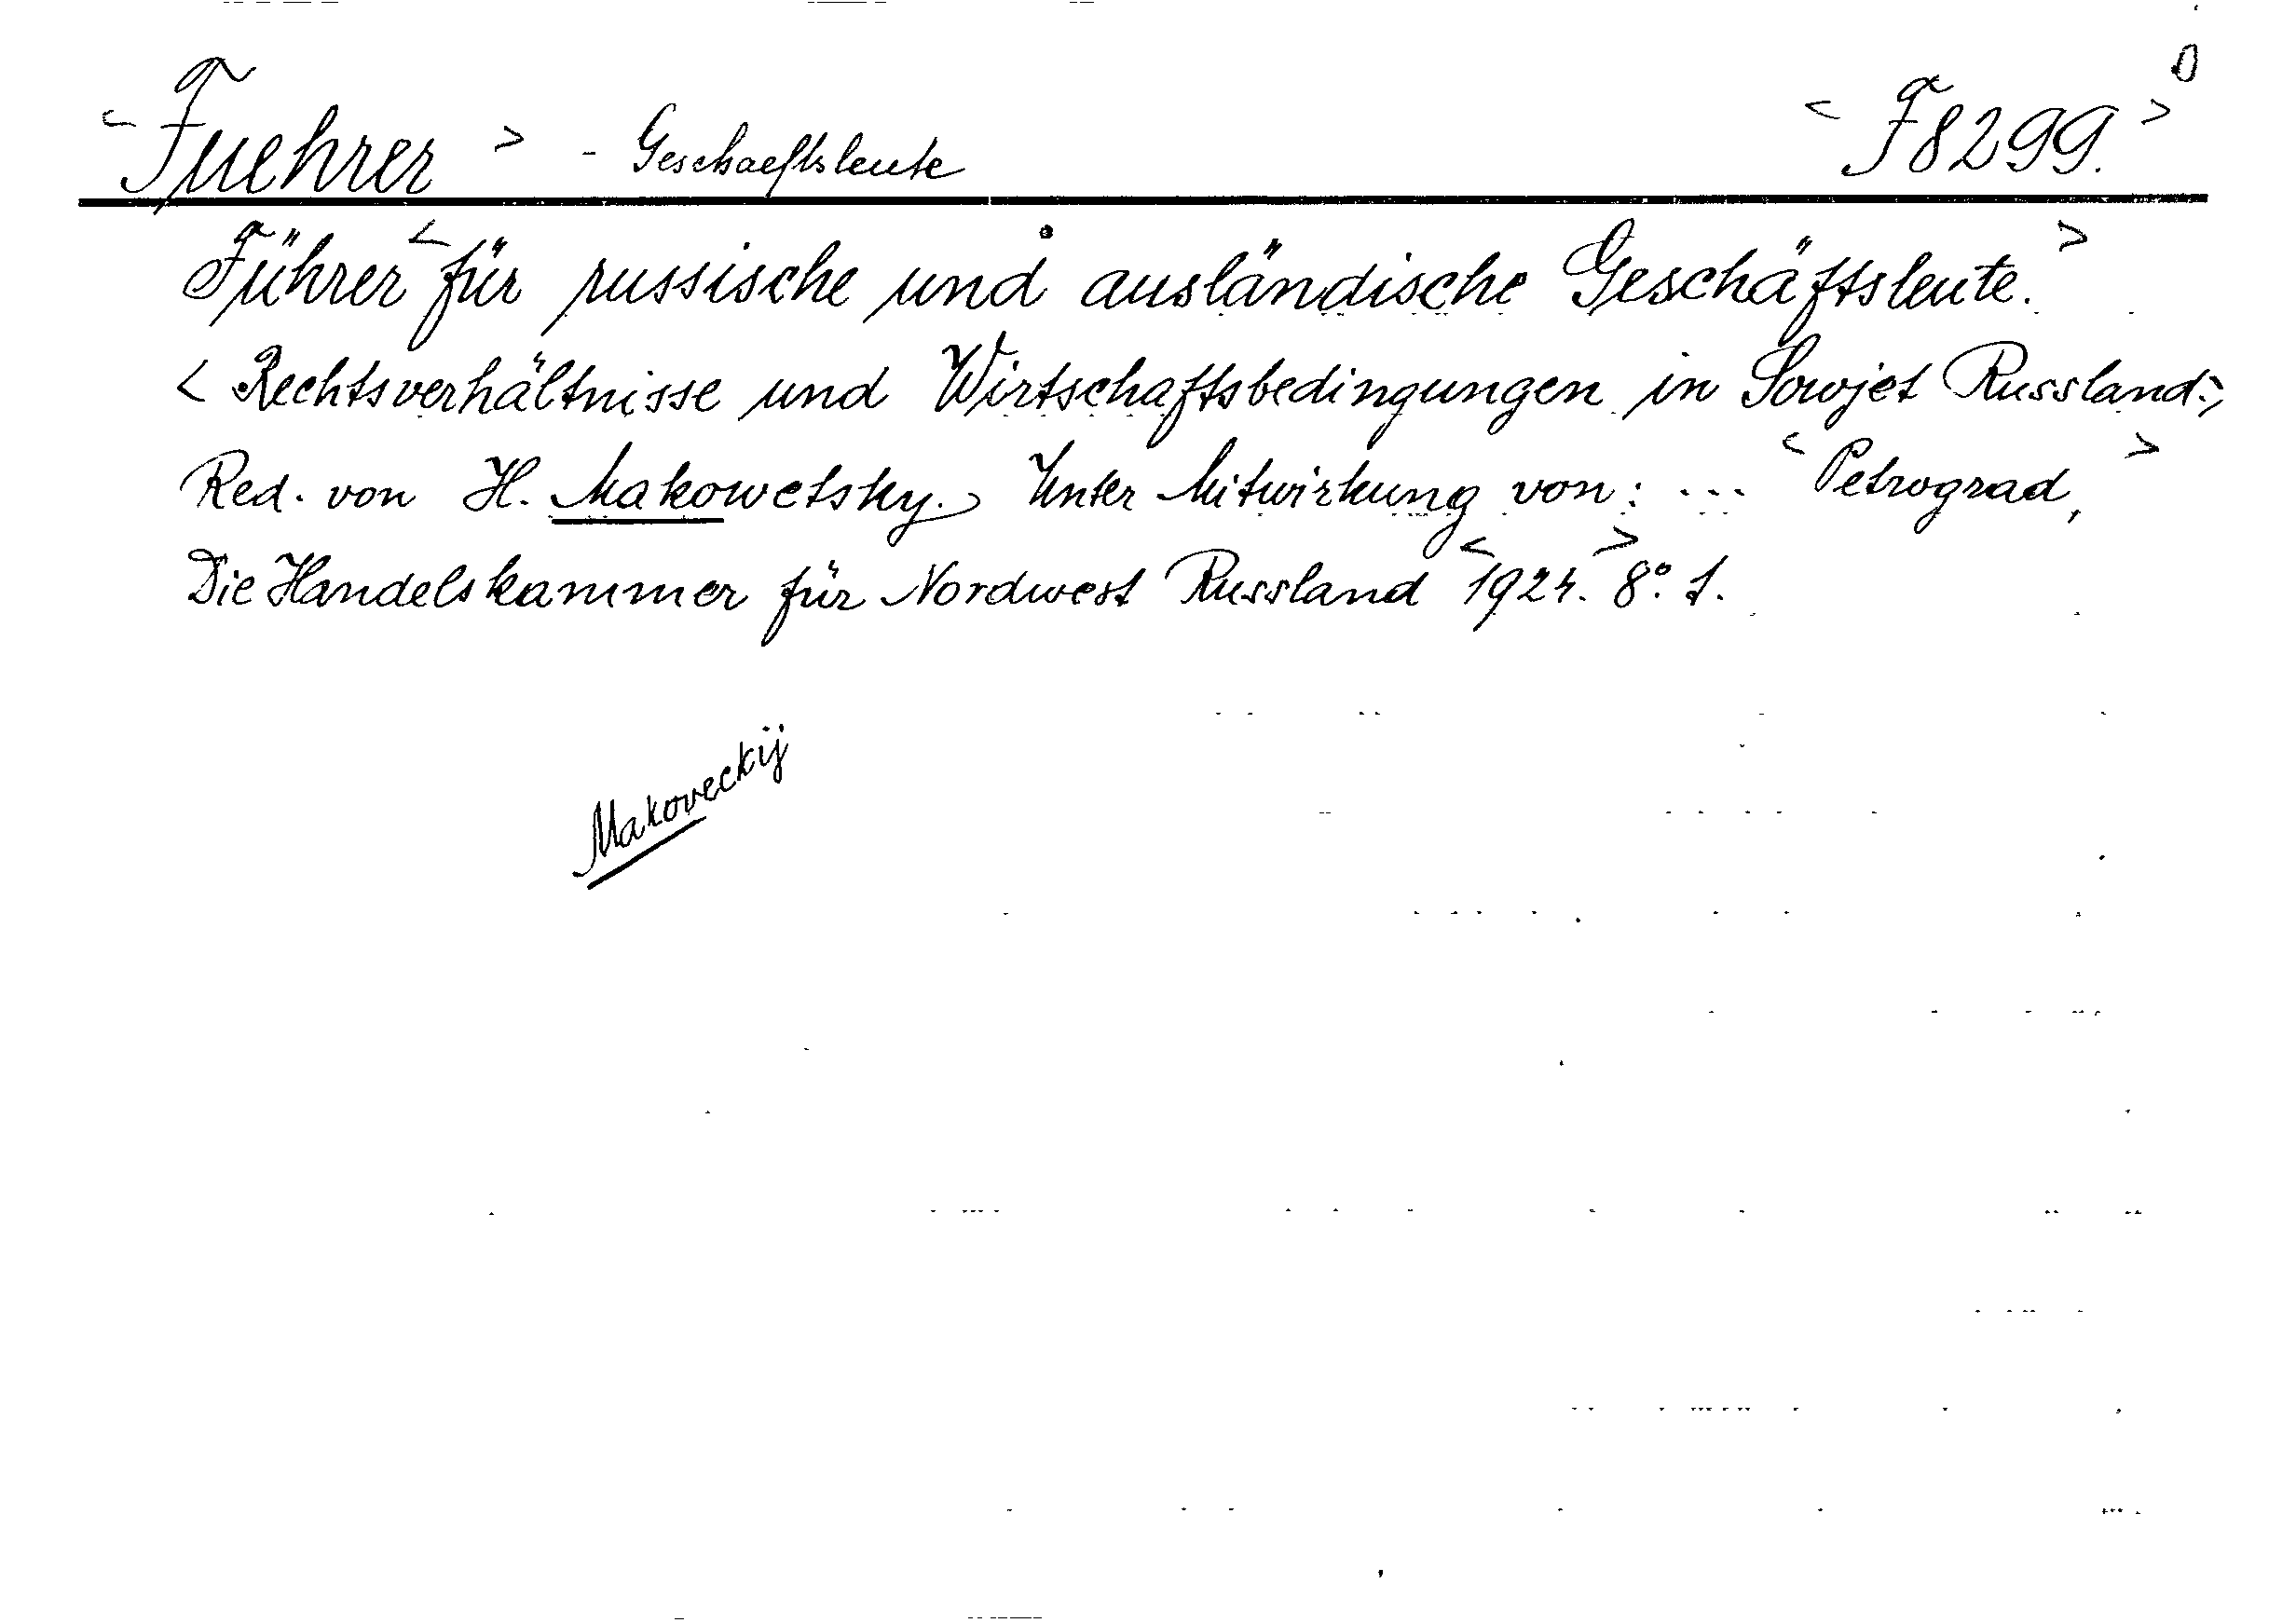 < Fuehrer > - Geschaeftsleute < F8299. >
Führer < für russische und ausländische Geschäftsleute. >
< Rechtsverhältnisse und Wirtschaftsbedingungen in Sowjet Russland. >
Red. von H. Makowetsky. > Unter Mitwirkung von: ... < Petrograd, >
Die Handelskammer für Nordwest Russland < 1924. > 8° 1.
Makoveckij